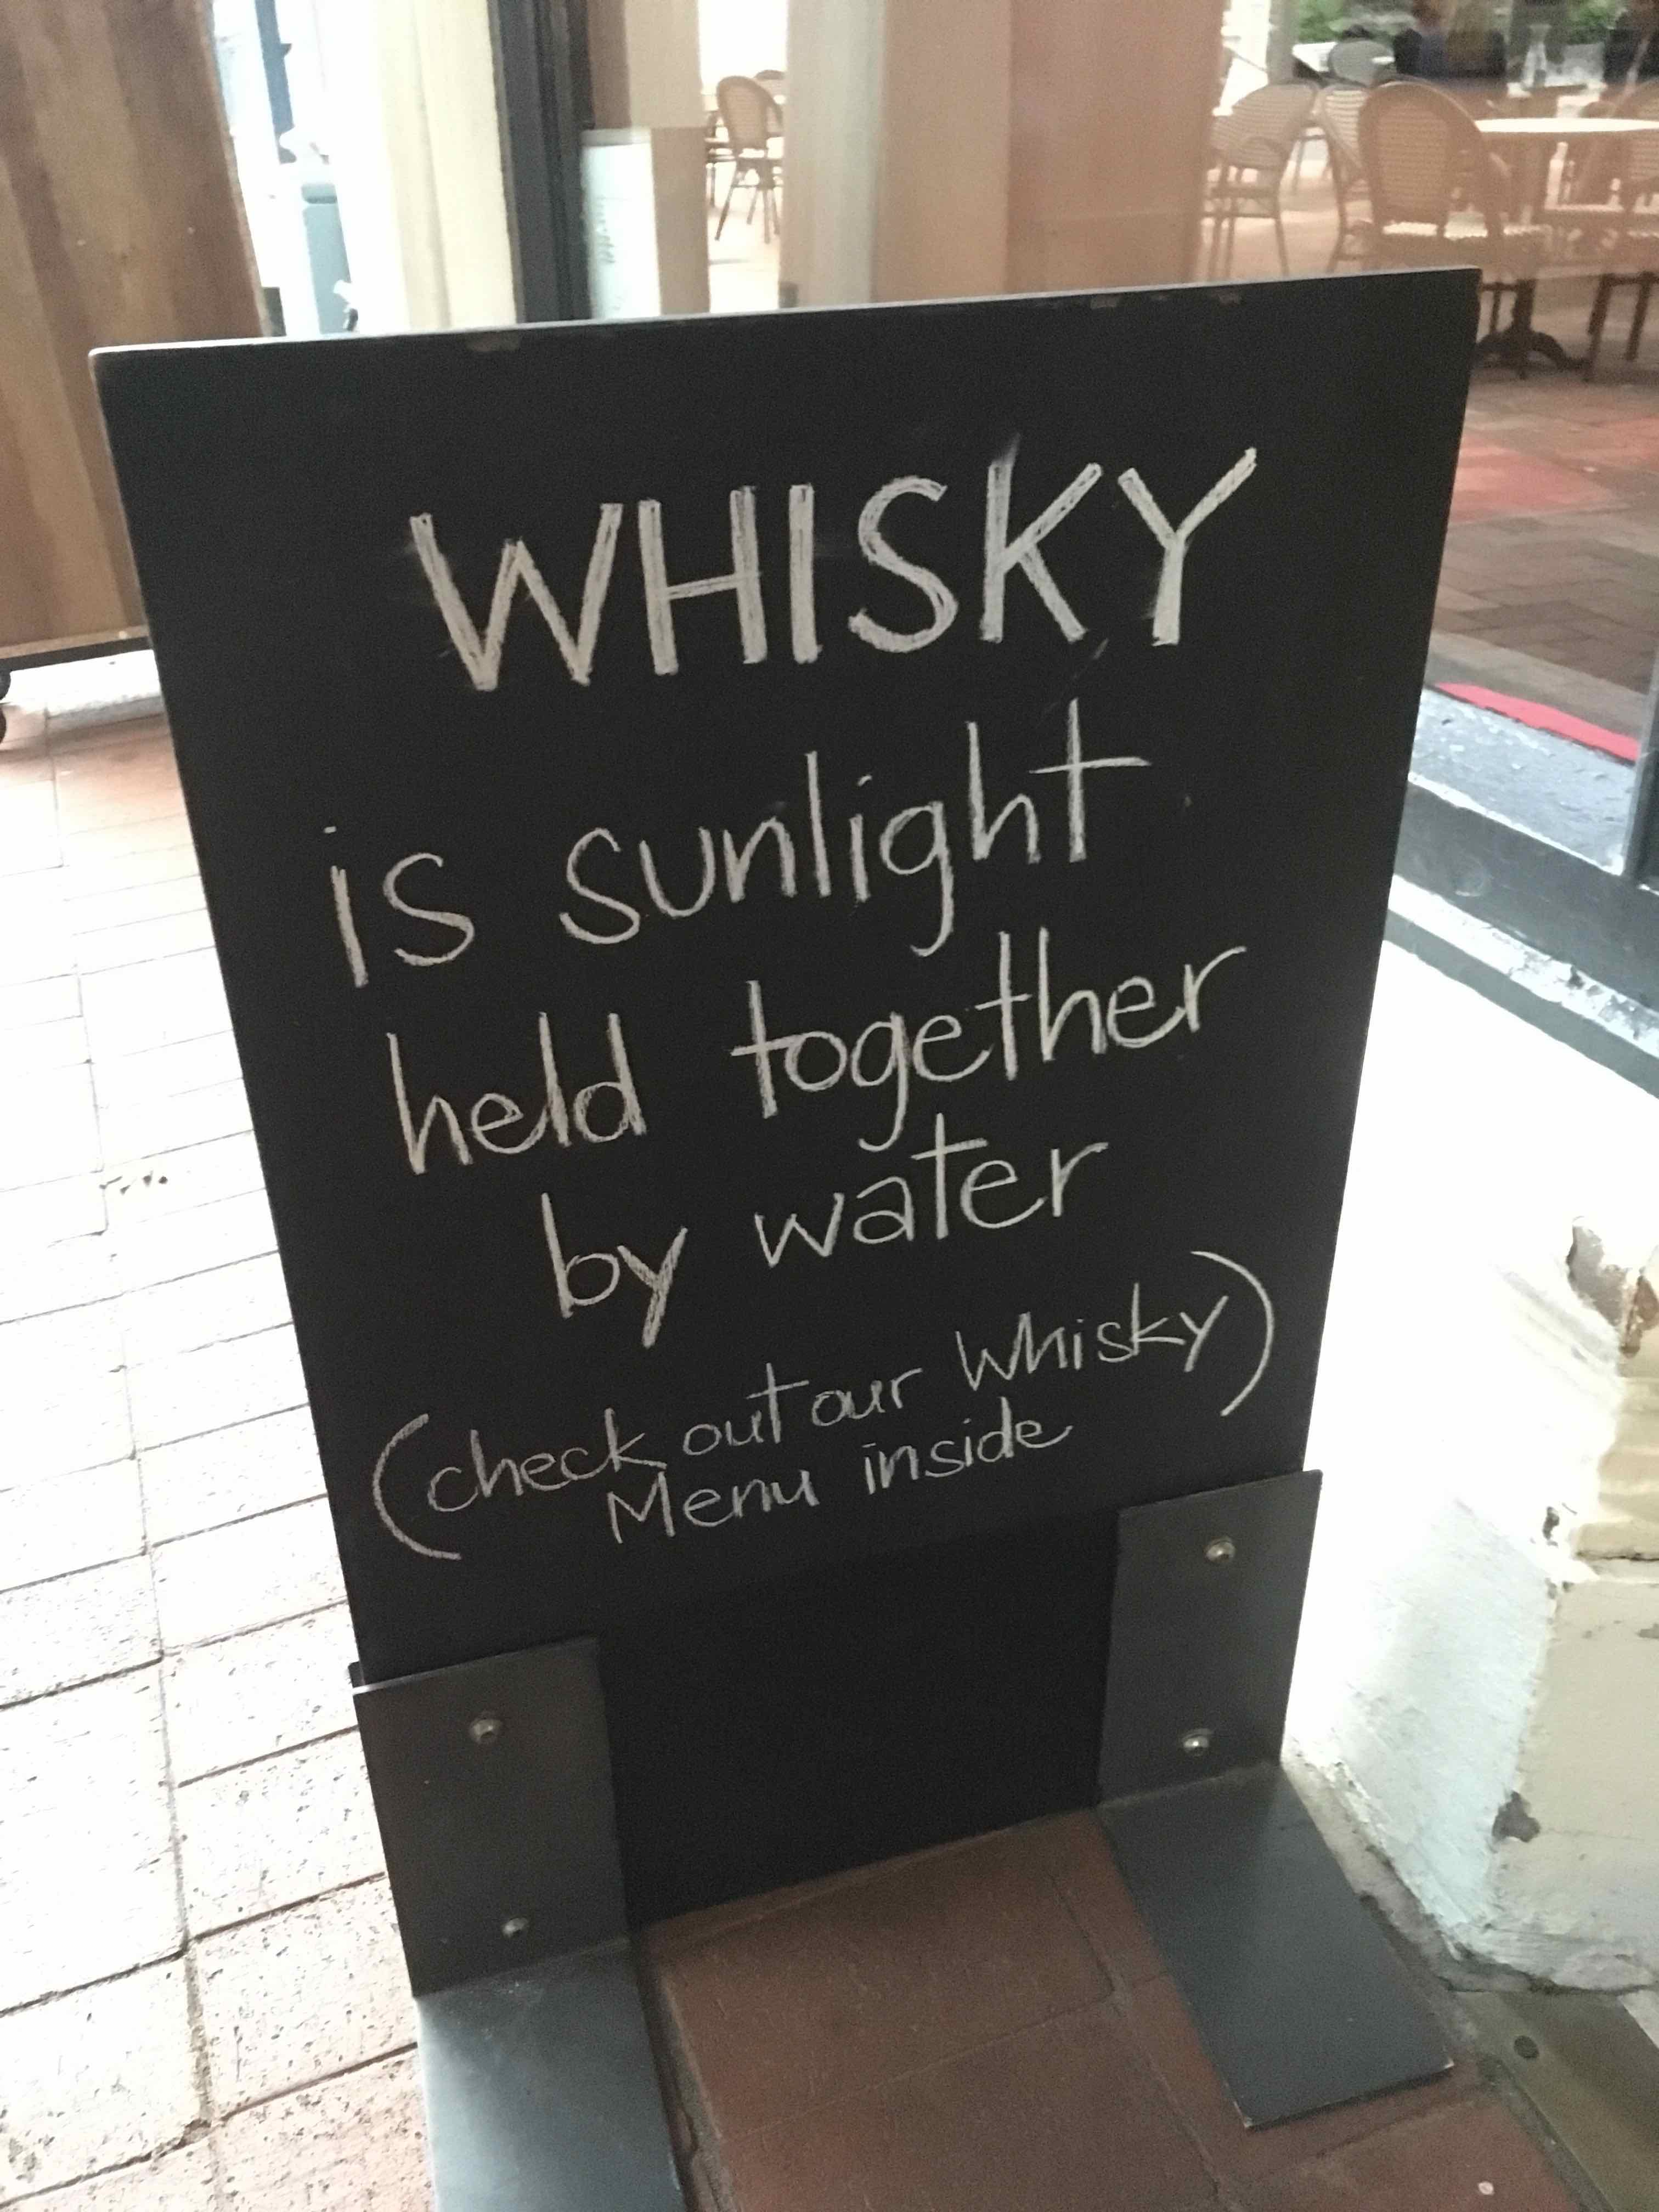 WHISKY
is sunlight
held together
by water
(check out our Whisky)
Menu inside